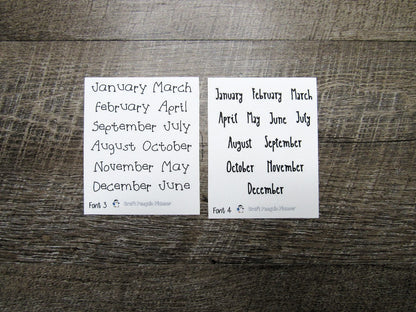 January March
February April
September July
August October
November May
December June
Font 3
Craft Penguin Planner
January February March
April May June July
August September
October November
December
Font 4
Craft Penguin Planner